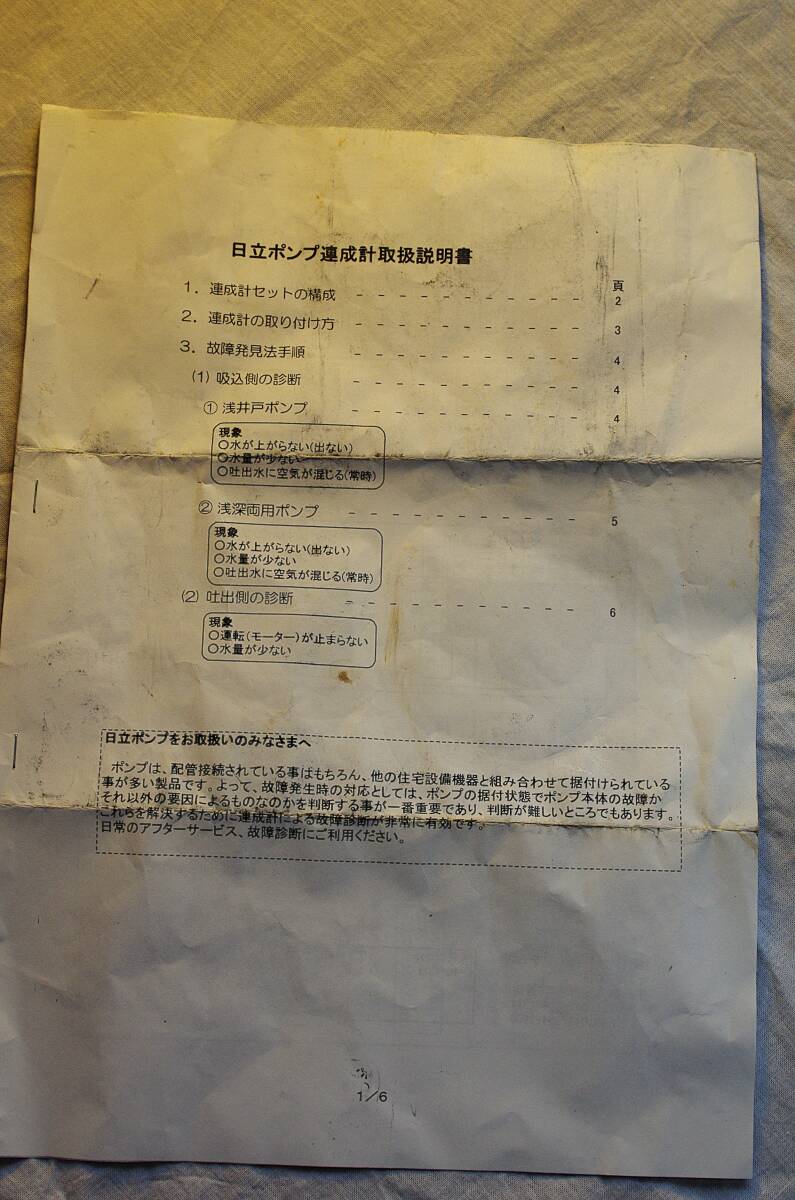 日立ポンプ連成計取扱説明書
頁
1. 連成計セットの構成 - - - - - - - - - - - 2
2. 連成計の取り付け方 - - - - - - - - - - - 3
3. 故障発見法手順 - - - - - - - - - - - 4
(1) 吸込側の診断 - - - - - - - - - - - 4
① 浅井戸ポンプ - - - - - - - - - - - 4
現象
○水が上がらない(出ない)
○水量が少ない
○吐出水に空気が混じる(常時)
② 浅深両用ポンプ - - - - - - - - - - - 5
現象
○水が上がらない(出ない)
○水量が少ない
○吐出水に空気が混じる(常時)
(2) 吐出側の診断 - - - - - - - - - - - 6
現象
○運転(モーター)が止まらない
○水量が少ない
日立ポンプをお取扱いのみなさまへ
ポンプは、配管接続されている事はもちろん、他の住宅設備機器と組み合わせて据付けられている
事が多い製品です。よって、故障発生時の対応としては、ポンプの据付状態でポンプ本体の故障か
それ以外の要因によるものなのかを判断する事が一番重要であり、判断が難しいところでもあります。
これらを解決するために連成計による故障診断が非常に有効です。
日常のアフターサービス、故障診断にご利用ください。
1/6